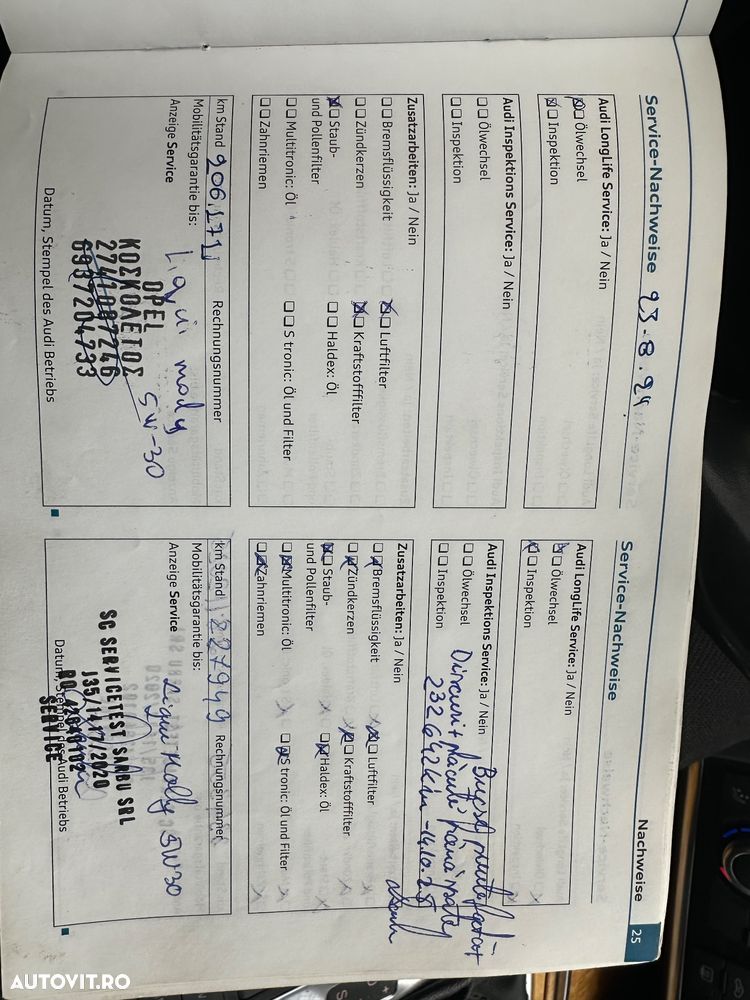 Service-Nachweise 23-8.24
Audi LongLife Service: Ja / Nein
Ölwechsel
Inspektion
Audi Inspektions Service: Ja / Nein
Ölwechsel
Inspektion
Zusatzarbeiten: Ja / Nein
Bremsflüssigkeit
Luftfilter
Zündkerzen
Kraftstofffilter
Staub-
und Pollenfilter
Haldex: Öl
Multitronic: Öl
S tronic: Öl und Filter
Zahnriemen
km Stand 206.171
Rechnungsnummer
Mobilitätsgarantie bis:
Anzeige Service
Liqui moly 5W-30
OPEL
ΚΟΣΚΟΛΕΤΟΣ
2741087246
6937204733
Datum, Stempel des Audi Betriebs
Nachweise 25
Service-Nachweise
Audi LongLife Service: Ja / Nein
Ölwechsel
Inspektion
Audi Inspektions Service: Ja / Nein
Ölwechsel
Inspektion
Discuri + placuti
232642km - 14.10.25
Zusatzarbeiten: Ja / Nein
Bremsflüssigkeit
Luftfilter
Zündkerzen
Kraftstofffilter
Staub-
und Pollenfilter
Haldex: Öl
Multitronic: Öl
S tronic: Öl und Filter
Zahnriemen
km Stand 227949
Rechnungsnummer
Mobilitätsgarantie bis:
Anzeige Service
Liqui Molly 5W30
SC SERVICETEST SARBU SRL
J35/1417/2020
RO 42640102
SERVICE
Datum, Stempel des Audi Betriebs
AUTOVIT.RO